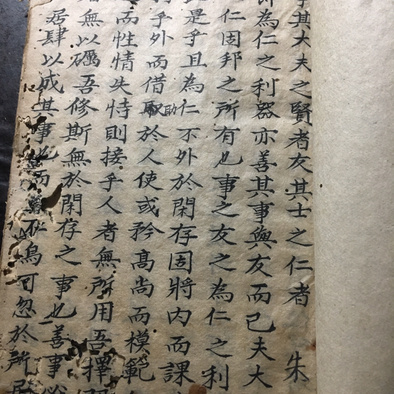 事其大夫之賢者友其士之仁者　朱
為仁之利器亦善其事與友而已夫大
仁固邦之所有也事之友之為仁之利
是乎且為仁不外於閑存固將內而課
乎外而借取助於人使或矜高尚而模範
而性情失恃則接乎人者無所用吾擇
無以礪吾修斯無於閑存之事也善事
居肆以成其事也而為仁烏可忽於所